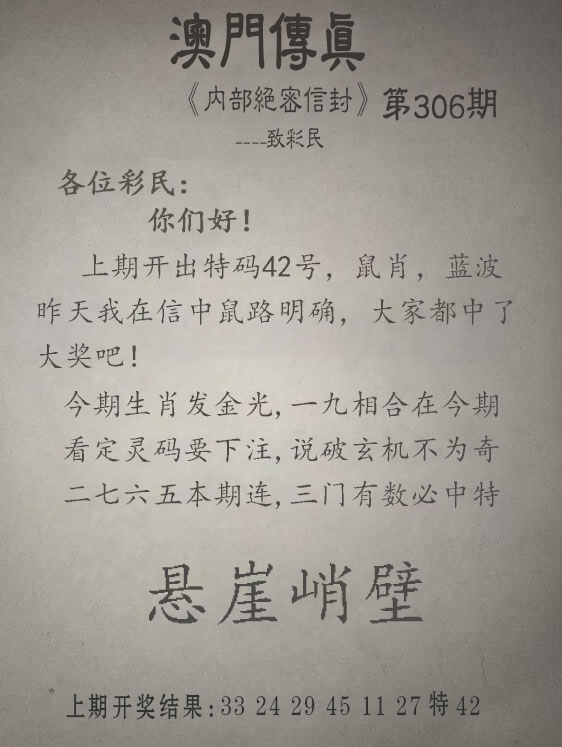 澳門傳真
《内部絕密信封》第306期
----致彩民
各位彩民：
你们好！
上期开出特码42号，鼠肖，蓝波
昨天我在信中鼠路明确，大家都中了
大奖吧！
今期生肖发金光,一九相合在今期
看定灵码要下注,说破玄机不为奇
二七六五本期连,三门有数必中特
悬崖峭壁
上期开奖结果:33 24 29 45 11 27 特 42